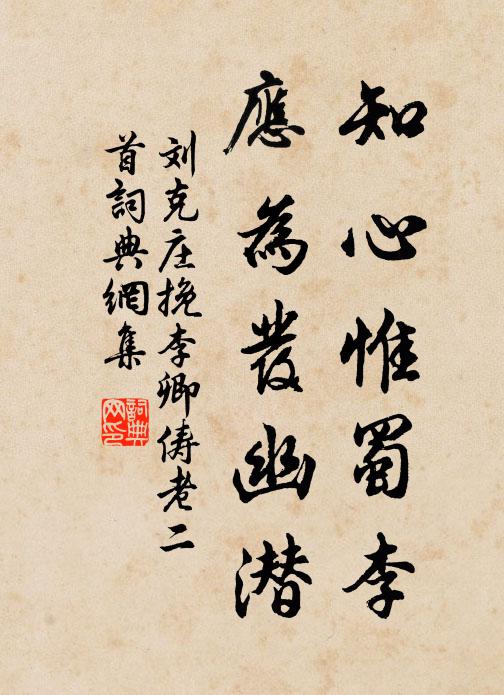 知心惟蜀李
應為發幽潛
刘克庄挽李卿俦老二
首詞典網集
詞典网印